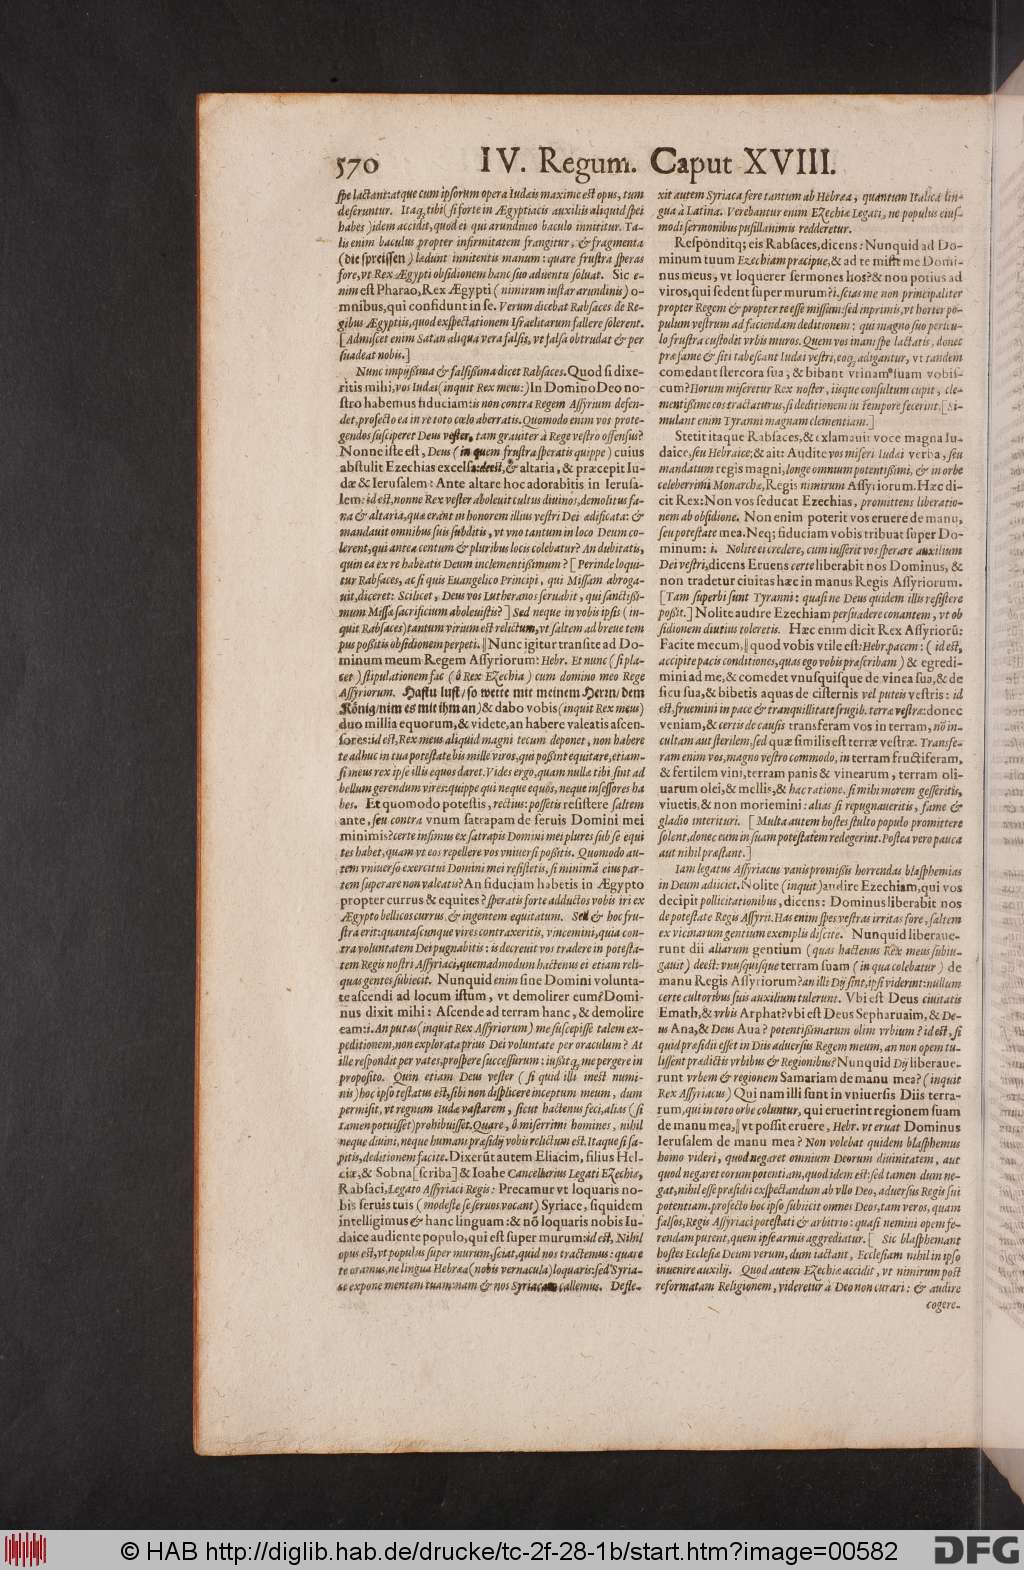 570 IV. Regum. Caput XVIII.
spe lactant: atque cum ipsorum opera Iudæis maxime est opus, tum
deseruntur. Itaq; tibi (si forte in Ægyptiacis auxiliis aliquid spei
habes) idem accidit, quod ei qui arundineo baculo innititur. Ta-
lis enim baculus propter infirmitatem frangitur, & fragmenta
(die spreissen) lædunt innitentis manum: quare frustra speras
fore, vt Rex Ægypti obsidionem hanc suo aduentu soluat. Sic e-
nim est Pharao, Rex Ægypti (nimirum instar arundinis) o-
mnibus, qui confidunt in se. Verum dicebat Rabsaces de Re-
gibus Ægyptiis, quod exspectationem Israelitarum fallere solerent.
[Admiscet enim Satan aliqua vera falsis, vt falsa obtrudat & per
suadeat nobis.]
Nunc impijssima & falsissima dicet Rabsaces. Quod si dixe-
ritis mihi, vos Iudæi (inquit Rex meus:) In Domino Deo no-
stro habemus fiduciam: is non contra Regem Assyrium defen-
det, profecto ea in re toto cœlo aberratis. Quomodo enim vos prote-
gendos susciperet Deus vester, tam grauiter à Rege vestro offensus?
Nonne iste est, Deus (in quem frustra speratis quippe) cuius
abstulit Ezechias excelsa: deest, & altaria, & præcepit Iu-
dæ & Ierusalem: Ante altare hoc adorabitis in Ierusa-
lem: id est, nonne Rex vester aboleuit cultus diuinos, demolitus fa-
na & altaria, quæ erant in honorem illius vestri Dei ædificata: &
mandauit omnibus suis subditis, vt vno tantum in loco Deum co-
lerent, qui antea centum & pluribus locis colebatur? An dubitatis,
quin ea ex re habeatis Deum inclementissimum? [Perinde loqui-
tur Rabsaces, ac si quis Euangelico Principi, qui Missam abroga-
uit, diceret: Scilicet, Deus vos Lutheranos seruabit, qui sanctissi-
mum Missæ sacrificium aboleuistis?] Sed neque in vobis ipsis (in-
quit Rabsaces) tantum virium est relictum, vt saltem ad breue tem
pus possitis obsidionem perpeti. || Nunc igitur transite ad Do-
minum meum Regem Assyriorum: Hebr. Et nunc (si pla-
cet) stipulationem fac (ô Rex Ezechia) cum domino meo Rege
Assyriorum. Hastu lust / so wette mit meinem Herrn / dem
König / nim es mit ihm an) & dabo vobis (inquit Rex meus)
duo millia equorum, & videte, an habere valeatis ascen-
sores: id est, Rex meus aliquid magni tecum deponet, non habere
te adhuc in tua potestate bis mille viros, qui possint equitare, etiam-
si meus rex ipse illis equos daret. Vides ergo, quam nullæ tibi sint ad
bellum gerendum vires: quippe qui neque equos, neque insessores ha
bes. Et quomodo potestis, rectius: possetis resistere saltem
ante, seu contra vnum satrapam de seruis Domini mei
minimis? certe infimus ex satrapis Domini mei plures sub se equi
tes habet, quam vt eos repellere vos vniuersi possitis. Quomodo au-
tem vniuerso exercitui Domini mei resistetis, si minimã eius par-
tem superare non valeatis? An fiduciam habetis in Ægypto
propter currus & equites? speratis forte adductos vobis iri ex
Ægypto bellicos currus, & ingentem equitatum. Sed & hoc fru-
stra erit: quantascunque vires contraxeritis, vincemini, quia con-
tra voluntatem Dei pugnabitis: is decreuit vos tradere in potesta-
tem Regis nostri Assyriaci, quemadmodum hactenus ei etiam reli-
quas gentes subiecit. Nunquid enim sine Domini volunta-
te ascendi ad locum istum, vt demolirer eum? Domi-
nus dixit mihi: Ascende ad terram hanc, & demolire
eam: i. An putas (inquit Rex Assyriorum) me suscepisse talem ex-
peditionem, non explorata prius Dei voluntate per oraculum? At
ille respondit per vates, prospere successurum: iussitq; me pergere in
proposito. Quin etiam Deus vester (si quid illi inest numi-
nis) hoc ipso testatus est, sibi non displicere inceptum meum, dum
permisit, vt regnum Iudæ vastarem, sicut hactenus feci, alias (si
tamen potuisset) prohibuisset. Quare, ô miserrimi homines, nihil
neque diuini, neque humani præsidij vobis relictum est. Itaque si sa-
pitis, deditionem facite. Dixerũt autem Eliacim, filius Hel-
ciæ, & Sobna [scriba] & Ioahe Cancellarius Legati Ezechiæ,
Rabsaci, Legato Assyriaci Regis: Precamur vt loquaris no-
bis seruis tuis (modeste se seruos vocant) Syriace, siquidem
intelligimus & hanc linguam: & nõ loquaris nobis Iu-
daice audiente populo, qui est super murum: id est, Nihil
opus est, vt populus super murum, sciat, quid nos tractemus: quare
te oramus, ne lingua Hebræa (nobis vernacula) loquaris: sed Syria-
ce expone mentem tuam: nam & nos Syriacam callemus. Defle-
xit autem Syriaca fere tantum ab Hebræa, quantum Italica lin-
gua à Latina. Verebantur enim Ezechiæ Legati, ne populus eius-
modi sermonibus pusillanimis redderetur.
Responditq; eis Rabsaces, dicens: Nunquid ad Do-
minum tuum Ezechiam præcipue, & ad te misit me Domi-
nus meus, vt loquerer sermones hos? & non potius ad
viros, qui sedent super murum? i. scias me non principaliter
propter Regem & propter te esse missum: sed inprimis, vt horter po-
pulum vestrum ad faciendam deditionem: qui magno suo pericu-
lo frustra custodit vrbis muros. Quem vos inani spe lactatis, donec
præ fame & siti tabescant Iudæi vestri, eoq; adigantur, vt tandem
comedant stercora sua, & bibant vrinam suam vobis-
cum? Horum miseretur Rex noster, iisque consultum cupit, cle-
mentissime eos tractaturus, si deditionem in tempore fecerint. [Si-
mulant enim Tyranni magnam clementiam.]
Stetit itaque Rabsaces, & exlamauit voce magna Iu-
daice, seu Hebraice: & ait: Audite vos miseri Iudæi verba, seu
mandatum regis magni, longe omnium potentissimi, & in orbe
celeberrimi Monarchæ, Regis nimirum Assyriorum. Hæc di-
cit Rex: Non vos seducat Ezechias, promittens liberatio-
nem ab obsidione. Non enim poterit vos eruere de manu,
seu potestate mea. Neq; fiduciam vobis tribuat super Do-
minum: i. Nolite ei credere, cum iusserit vos sperare auxilium
Dei vestri, dicens Eruens certe liberabit nos Dominus, &
non tradetur ciuitas hæc in manus Regis Assyriorum.
[Tam superbi sunt Tyranni: quasi ne Deus quidem illis resistere
possit.] Nolite audire Ezechiam persuadere conantem, vt ob
sidionem diutius toleretis. Hæc enim dicit Rex Assyriorũ:
Facite mecum, || quod vobis vtile est: Hebr. pacem: (id est,
accipite pacis conditiones, quas ego vobis præscribam) & egredi-
mini ad me, & comedet vnusquisque de vinea sua, & de
ficu sua, & bibetis aquas de cisternis vel puteis vestris: id
est, fruemini in pace & tranquillitate frugib. terræ vestræ: donec
veniam, & certis de causis transferam vos in terram, nõ in-
cultam aut sterilem, sed quæ similis est terræ vestræ. Transfe-
ram enim vos, magno vestro commodo, in terram fructiferam,
& fertilem vini, terram panis & vinearum, terram oli-
uarum olei, & mellis, & hac ratione. si mihi morem gesseritis,
viuetis, & non moriemini: alias si repugnaueritis, fame &
gladio interituri. [Multa autem hostes stulto populo promittere
solent, donec eum in suam potestatem redegerint. Postea vero pauca
aut nihil præstant.]
Iam legatus Assyriacus vanis promissis horrendas blasphemias
in Deum adiiciet. Nolite (inquit) audire Ezechiam, qui vos
decipit pollicitationibus, dicens: Dominus liberabit nos
de potestate Regis Assyrii. Has enim spes vestras irritas fore, saltem
ex vicinarum gentium exemplis discite. Nunquid liberaue-
runt dii aliarum gentium (quas hactenus Rex meus subiu-
gauit) deest: vnusquisque terram suam (in qua colebatur) de
manu Regis Assyriorum? an illi Dij sint, ipsi viderint: nullum
certe cultoribus suis auxilium tulerunt. Vbi est Deus ciuitatis
Emath, & vrbis Arphat? vbi est Deus Sepharuaim, & De-
us Ana, & Deus Aua? potentissimarum olim vrbium? id est, si
quid præsidii esset in Diis aduersus Regem meum, an non opem tu-
lissent prædictis vrbibus & Regionibus? Nunquid Dij liberaue-
runt vrbem & regionem Samariam de manu mea? (inquit
Rex Assyriacus) Qui nam illi sunt in vniuersis Diis terra-
rum, qui in toto orbe coluntur, qui eruerint regionem suam
de manu mea, || vt possit eruere, Hebr. vt eruat Dominus
Ierusalem de manu mea? Non volebat quidem blasphemus
homo videri, quod negaret omnium Deorum diuinitatem, aut
quod negaret eorum potentiam, quod idem est: sed tamen dum ne-
gat, nihil esse præsidii exspectandum ab vllo Deo, aduersus Regis sui
potentiam, profecto hoc ipso subiicit omnes Deos, tam veros, quam
falsos, Regis Assyriaci potestati & arbitrio: quasi nemini opem fe-
rendam putent, quem ipse armis aggrediatur. [Sic blasphemant
hostes Ecclesiæ Deum verum, dum iactant, Ecclesiam nihil in ipso
inuenire auxilij. Quod autem Ezechiæ accidit, vt nimirum post
reformatam Religionem, videretur à Deo non curari: & audire
cogere-
© HAB http://diglib.hab.de/drucke/tc-2f-28-1b/start.htm?image=00582
DFG